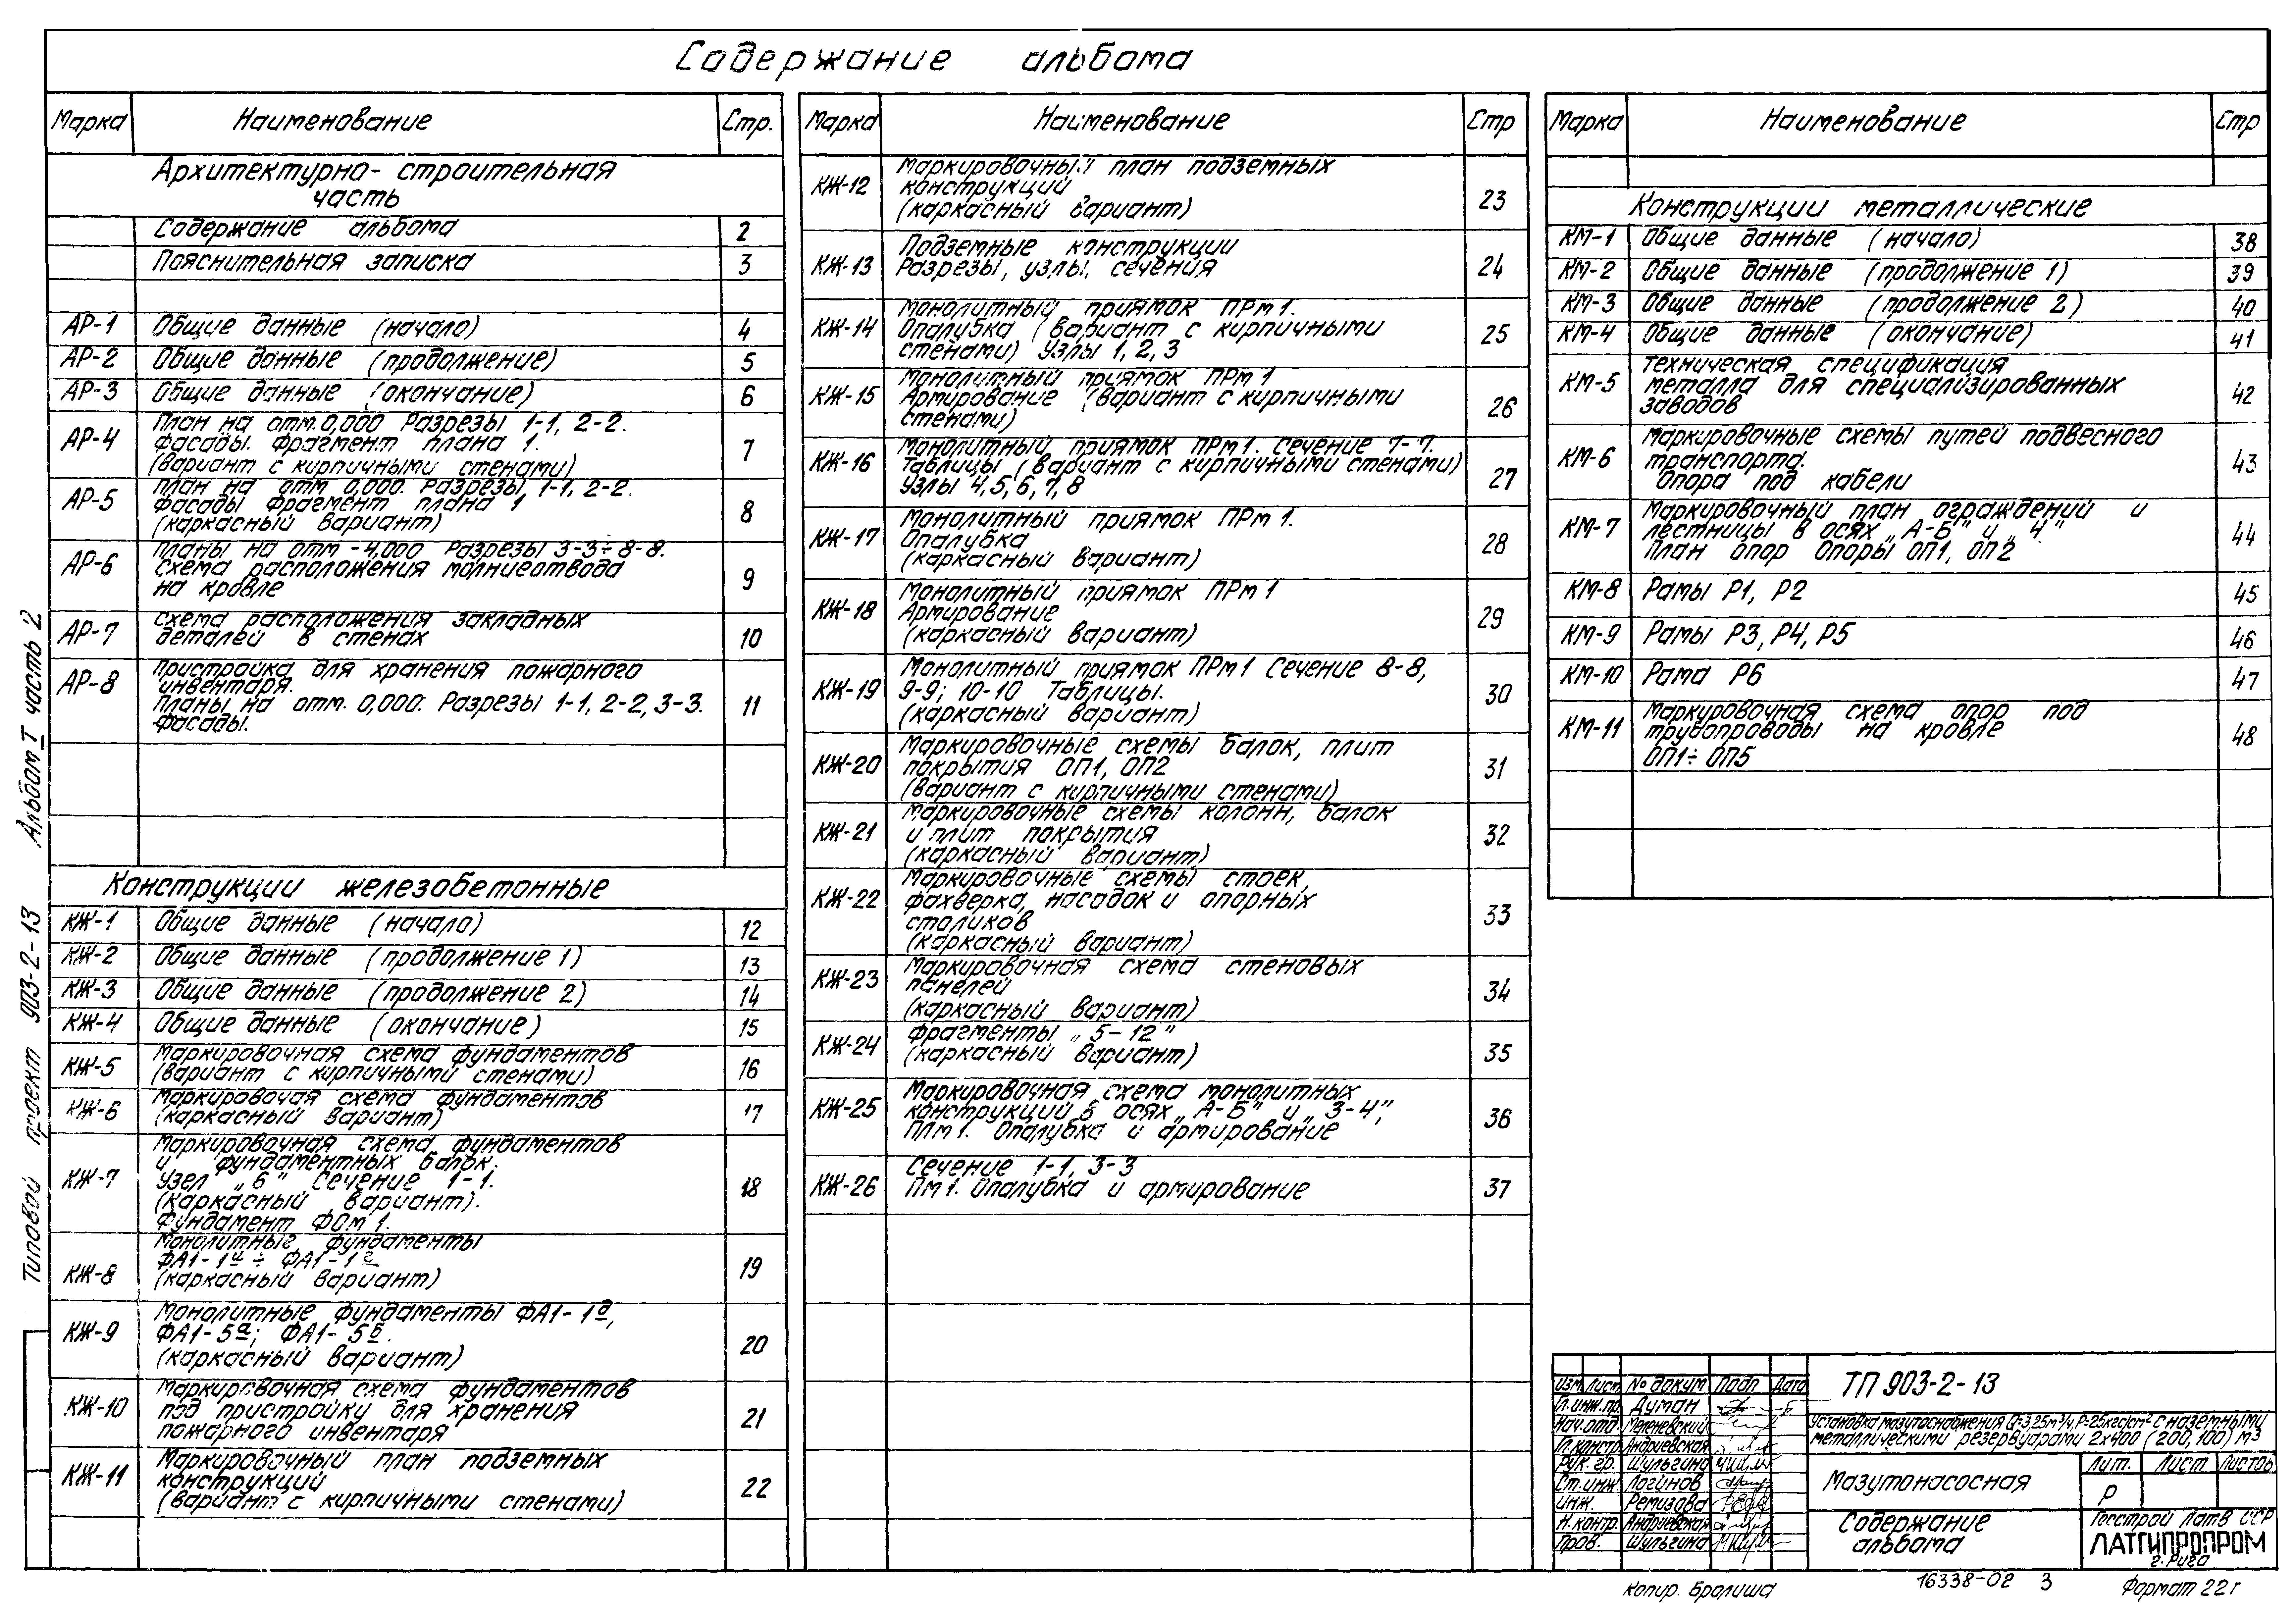 Содержание альбома
Марка Наименование Стр.
Архитектурно-строительная
часть
Содержание альбома 2
Пояснительная записка 3
АР-1 Общие данные (начало) 4
АР-2 Общие данные (продолжение) 5
АР-3 Общие данные (окончание) 6
АР-4 План на отм. 0,000 Разрезы 1-1, 2-2.
Фасады. Фрагмент плана 1.
(вариант с кирпичными стенами) 7
АР-5 План на отм 0,000. Разрезы 1-1, 2-2.
Фасады Фрагмент плана 1
(каркасный вариант) 8
АР-6 Планы на отм -4,000 Разрезы 3-3÷8-8.
Схема расположения молниеотвода
на кровле 9
АР-7 Схема расположения закладных
деталей в стенах 10
АР-8 Пристройка для хранения пожарного
инвентаря.
Планы на отм. 0,000. Разрезы 1-1, 2-2, 3-3.
Фасады. 11
Конструкции железобетонные
КЖ-1 Общие данные (начало) 12
КЖ-2 Общие данные (продолжение 1) 13
КЖ-3 Общие данные (продолжение 2) 14
КЖ-4 Общие данные (окончание) 15
КЖ-5 Маркировочная схема фундаментов
(вариант с кирпичными стенами) 16
КЖ-6 Маркировочая схема фундаментов
(каркасный вариант) 17
КЖ-7 Маркировочная схема фундаментов
и фундаментных балок.
Узел „6" Сечение 1-1.
(каркасный вариант).
Фундамент ФОм 1. 18
КЖ-8 Монолитные фундаменты
ФА1-1 ÷ ФА1-1г
(каркасный вариант) 19
КЖ-9 Монолитные фундаменты ФА1-1д,
ФА1-5а; ФА1-5б.
(каркасный вариант) 20
КЖ-10 Маркировочная схема фундаментов
под пристройку для хранения
пожарного инвентаря 21
КЖ-11 Маркировочный план подземных
конструкций
(вариант с кирпичными стенами) 22
Марка Наименование Стр
КЖ-12 Маркировочный план подземных
конструкций
(каркасный вариант) 23
КЖ-13 Подземные конструкции
Разрезы, узлы, сечения 24
КЖ-14 Монолитный приямок ПРм 1.
Опалубка (вариант с кирпичными
стенами) Узлы 1, 2, 3 25
КЖ-15 Монолитный приямок ПРм 1
Армирование (вариант с кирпичными
стенами) 26
КЖ-16 Монолитный приямок ПРм 1. Сечение 7-7.
Таблицы (вариант с кирпичными стенами)
Узлы 4, 5, 6, 7, 8 27
КЖ-17 Монолитный приямок ПРм 1.
Опалубка
(каркасный вариант) 28
КЖ-18 Монолитный приямок ПРм 1
Армирование
(каркасный вариант) 29
КЖ-19 Монолитный приямок ПРм 1 Сечение 8-8,
9-9; 10-10 Таблицы.
(каркасный вариант) 30
КЖ-20 Маркировочные схемы балок, плит
покрытия ОП1, ОП2
(вариант с кирпичными стенами) 31
КЖ-21 Маркировочные схемы колонн, балок
и плит покрытия
(каркасный вариант) 32
КЖ-22 Маркировочные схемы стоек,
фахверка, насадок и опорных
столиков
(каркасный вариант) 33
КЖ-23 Маркировочная схема стеновых
панелей
(каркасный вариант) 34
КЖ-24 Фрагменты „5-12"
(каркасный вариант) 35
КЖ-25 Маркировочная схема монолитных
конструкций в осях „А-Б" и „3-4",
ПЛм 1. Опалубка и армирование 36
КЖ-26 Сечение 1-1, 3-3
Пм 1. Опалубка и армирование 37
Марка Наименование Стр
Конструкции металлические
КМ-1 Общие данные (начало) 38
КМ-2 Общие данные (продолжение 1) 39
КМ-3 Общие данные (продолжение 2) 40
КМ-4 Общие данные (окончание) 41
КМ-5 Техническая спецификация
металла для специализированных
заводов 42
КМ-6 Маркировочные схемы путей подвесного
транспорта.
Опора под кабели 43
КМ-7 Маркировочный план ограждений и
лестницы в осях „А-Б" и „4"
План опор Опоры ОП1, ОП2 44
КМ-8 Рамы Р1, Р2 45
КМ-9 Рамы Р3, Р4, Р5 46
КМ-10 Рама Р6 47
КМ-11 Маркировочная схема опор под
трубопроводы на кровле
ОП1÷ОП5 48
Типовой проект 903-2-13 Альбом I часть 2
Изм Лист № докум Подп Дата
Гл.инж.пр. Думан
Нач.отд Меленевский
Гл.констр Андриевская
Рук. гр. Шульгина
Ст.инж. Логинов
Инж. Ремизова
Н.контр. Андриевская
Пров. Шульгина
ТП 903-2-13
Установка мазутоснабжения Q=3,25м³/ч, Р=25кгс/см² с наземными
металлическими резервуарами 2х400 (200, 100) м3
Мазутонасосная
Лит. Лист Листов
Р
Содержание
альбома
Госстрой Латв ССР
ЛАТГИПРОПРОМ
г. Рига
Копир. Бралиша 16338-02 3 Формат 22г